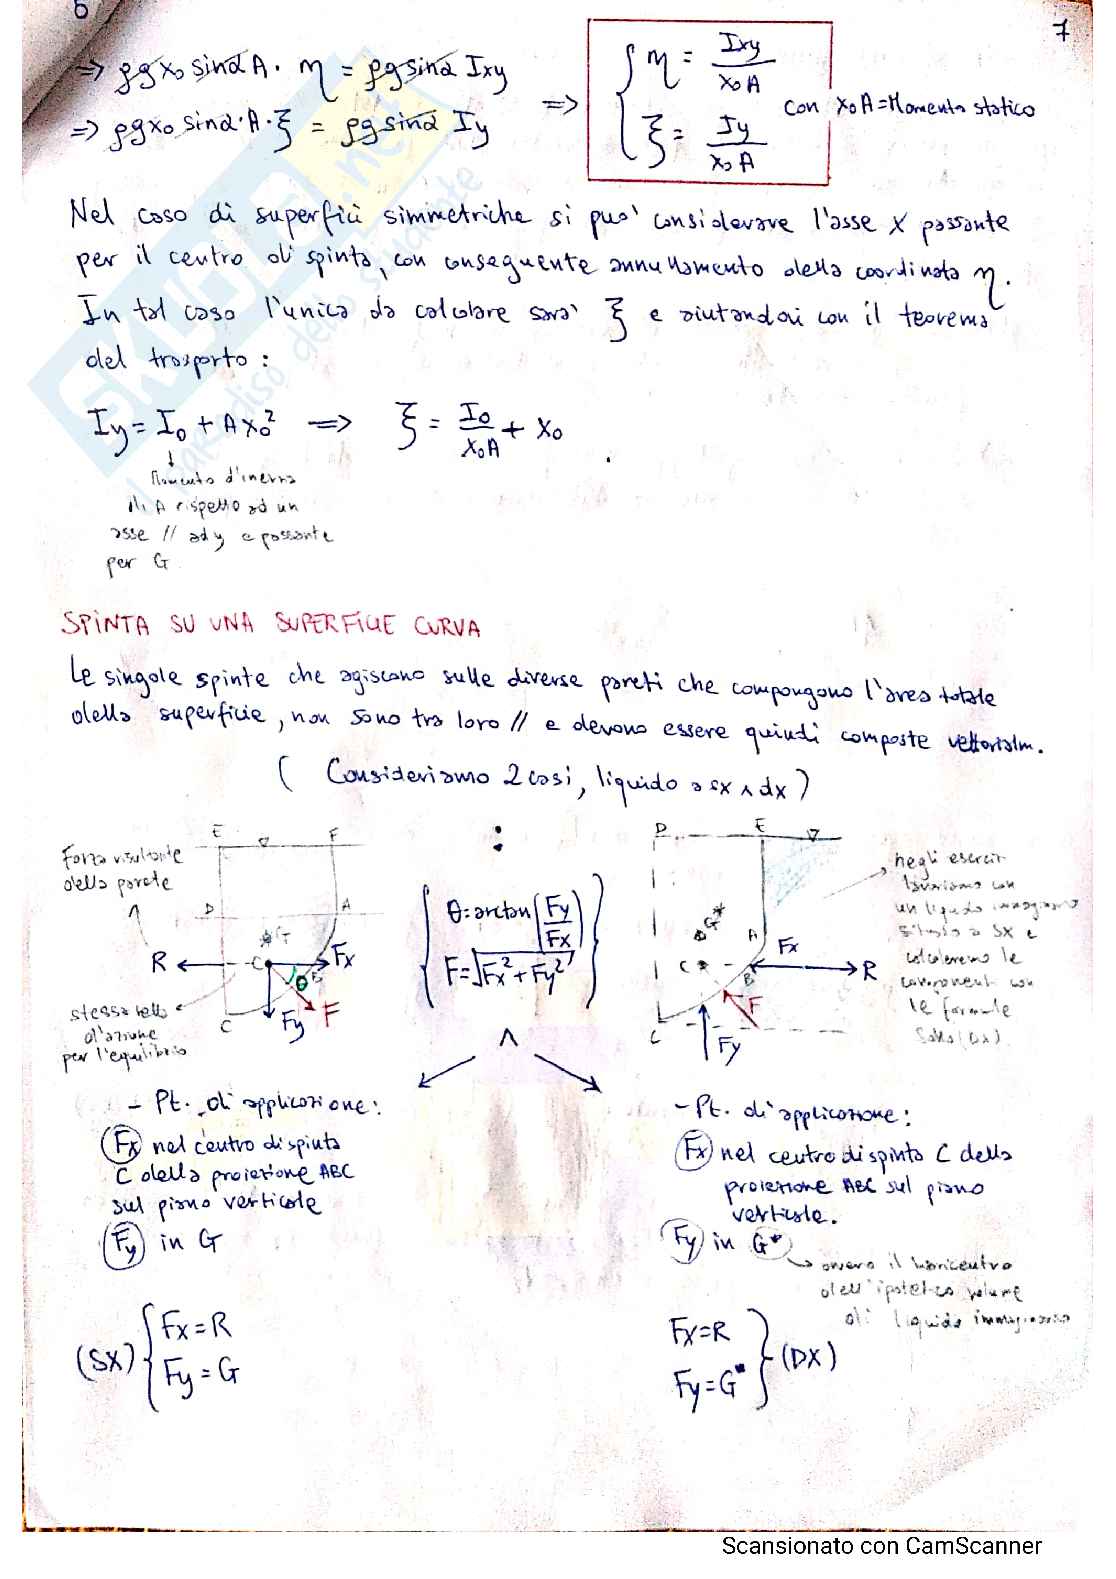 6
7
=> ρg x₀ sinα A · η = ρg sinα Ixy
=> ρg x₀ sinα · A · ξ = ρg sinα Iy
=>
η = Ixy / x₀A
ξ = Iy / x₀A
con x₀A = Momento statico
Nel caso di superfici simmetriche si può considerare l'asse x passante
per il centro di spinta, con conseguente annullamento della coordinata η.
In tal caso l'unica da calcolare sarà ξ e aiutandoci con il teorema
del trasporto:
Iy = I₀ + A x₀² => ξ = I₀ / x₀A + x₀
Momento d'inerzia
di A rispetto ad un
asse // ad y e passante
per G
SPINTA SU UNA SUPERFICIE CURVA
Le singole spinte che agiscono sulle diverse pareti che compongono l'area totale
della superficie, non sono tra loro // e devono essere quindi composte vettorialm.
( Consideriamo 2 casi, liquido a sx ∧ dx )
:
E F
Forza risultante
della parete
D A
G
R C Fx
B
θ
stessa retta
d'azione
per l'equilibrio
C Fy F
θ = arctan (Fy / Fx)
F = √Fx² + Fy²
∧
D E
negli esercizi
lavoriamo con
un liquido immaginario
situato a sx e
calcoleremo le
componenti con
le formule
G*
A
Fx
C B R
F
C
Fy
- Pt. di applicazione:
Fx nel centro di spinta
C della proiezione ABC
sul piano verticale
Fy in G
- Pt. di applicazione:
Fx nel centro di spinta C della
proiezione ABC sul piano
verticale.
Fy in G*
ovvero il baricentro
dell'ipotetico volume
di liquido immaginario
(SX) { Fx = R
Fy = G
Fx = R
Fy = G* } (DX)
SKUOLA.net
il paradiso dello studente
Scansionato con CamScanner